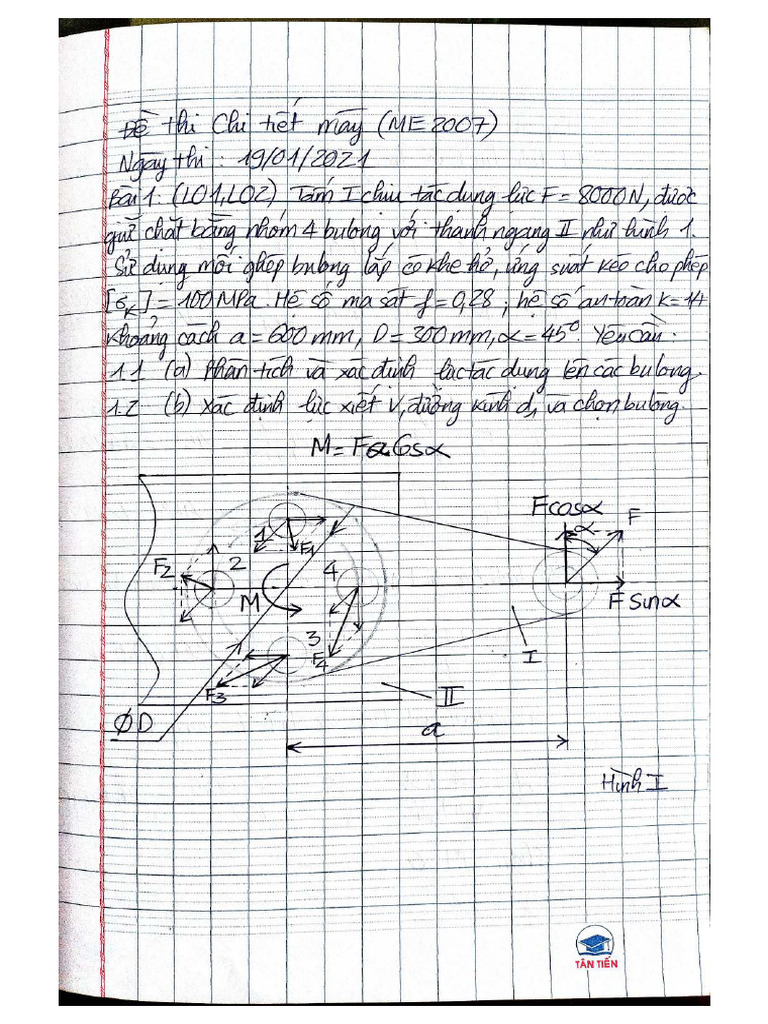 Đề thi Chi tiết máy (ME2007)
Ngày thi: 19/01/2021
Bài 1: (LO1,LO2) Tấm I chịu tác dụng lực F = 8000N, được
giữ chặt bằng nhóm 4 bulong với thanh ngang II như hình 1.
Sử dụng mối ghép bulong lắp có khe hở, ứng suất kéo cho phép
[σK] = 100MPa. Hệ số ma sát f = 0,28; hệ số an toàn k = 1,4
Khoảng cách a = 600 mm, D = 300 mm, α = 45°. Yêu cầu:
1.1 (a) Phân tích và xác định lực tác dụng lên các bulong.
1.2 (b) Xác định lực xiết V, đường kính d1 và chọn bulong.
M = Fa Cosα
Fcosα
F
α
1
F1
F2
2
4
M
F Sinα
3
F4
I
F3
II
ØD
a
Hình I
TÂN TIẾN